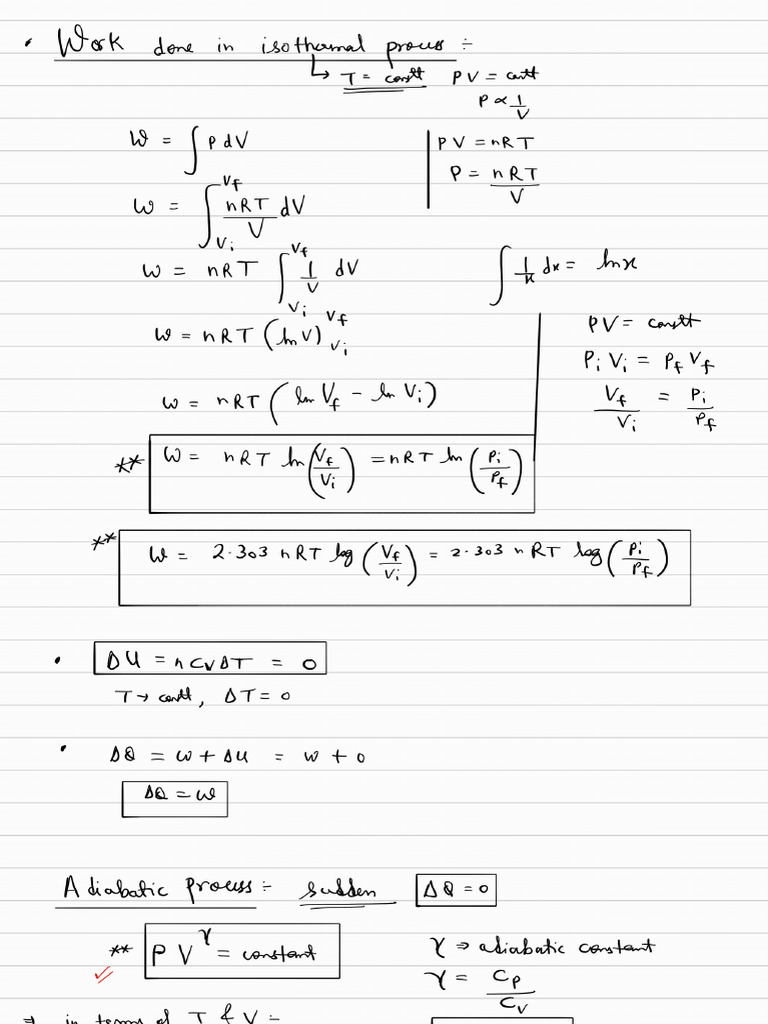 • Work done in isothermal process :-
↳ T = constt PV = constt
P ∝ 1/V
W = ∫ P dV
PV = nRT
W = ∫_{Vi}^{Vf} nRT/V dV
P = nRT/V
W = nRT ∫_{Vi}^{Vf} 1/V dV
∫ 1/x dx = ln x
W = nRT (ln V)_{Vi}^{Vf}
PV = constt
Pi Vi = Pf Vf
W = nRT (ln Vf - ln Vi)
Vf/Vi = Pi/Pf
** W = nRT ln (Vf/Vi) = nRT ln (Pi/Pf)
** W = 2.303 nRT log (Vf/Vi) = 2.303 nRT log (Pi/Pf)
• ΔU = nCvΔT = 0
T → constt, ΔT = 0
• ΔQ = W + ΔU = W + 0
ΔQ = W
Adiabatic process :- sudden ΔQ = 0
** PV^γ = constant
γ ⇒ adiabatic constant
γ = CP/CV
⇒ in terms of T & V :-